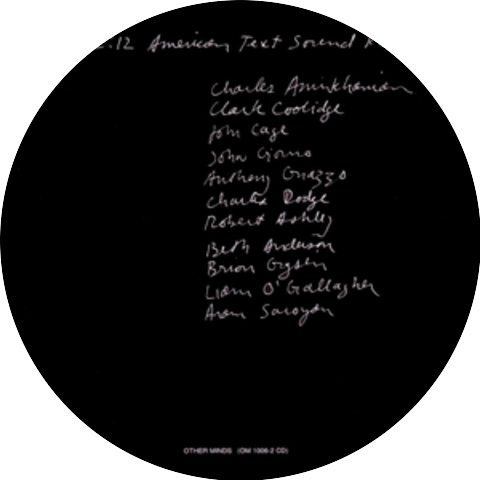 .12 American Text Sound
Charles Amirkhanian
Clark Coolidge
John Cage
John Giorno
Anthony Gnazzo
Charles Dodge
Robert Ashley
Beth Anderson
Brion Gysin
Liam O'Gallagher
Aram Saroyan
OTHER MINDS (OM 1006-2 CD)